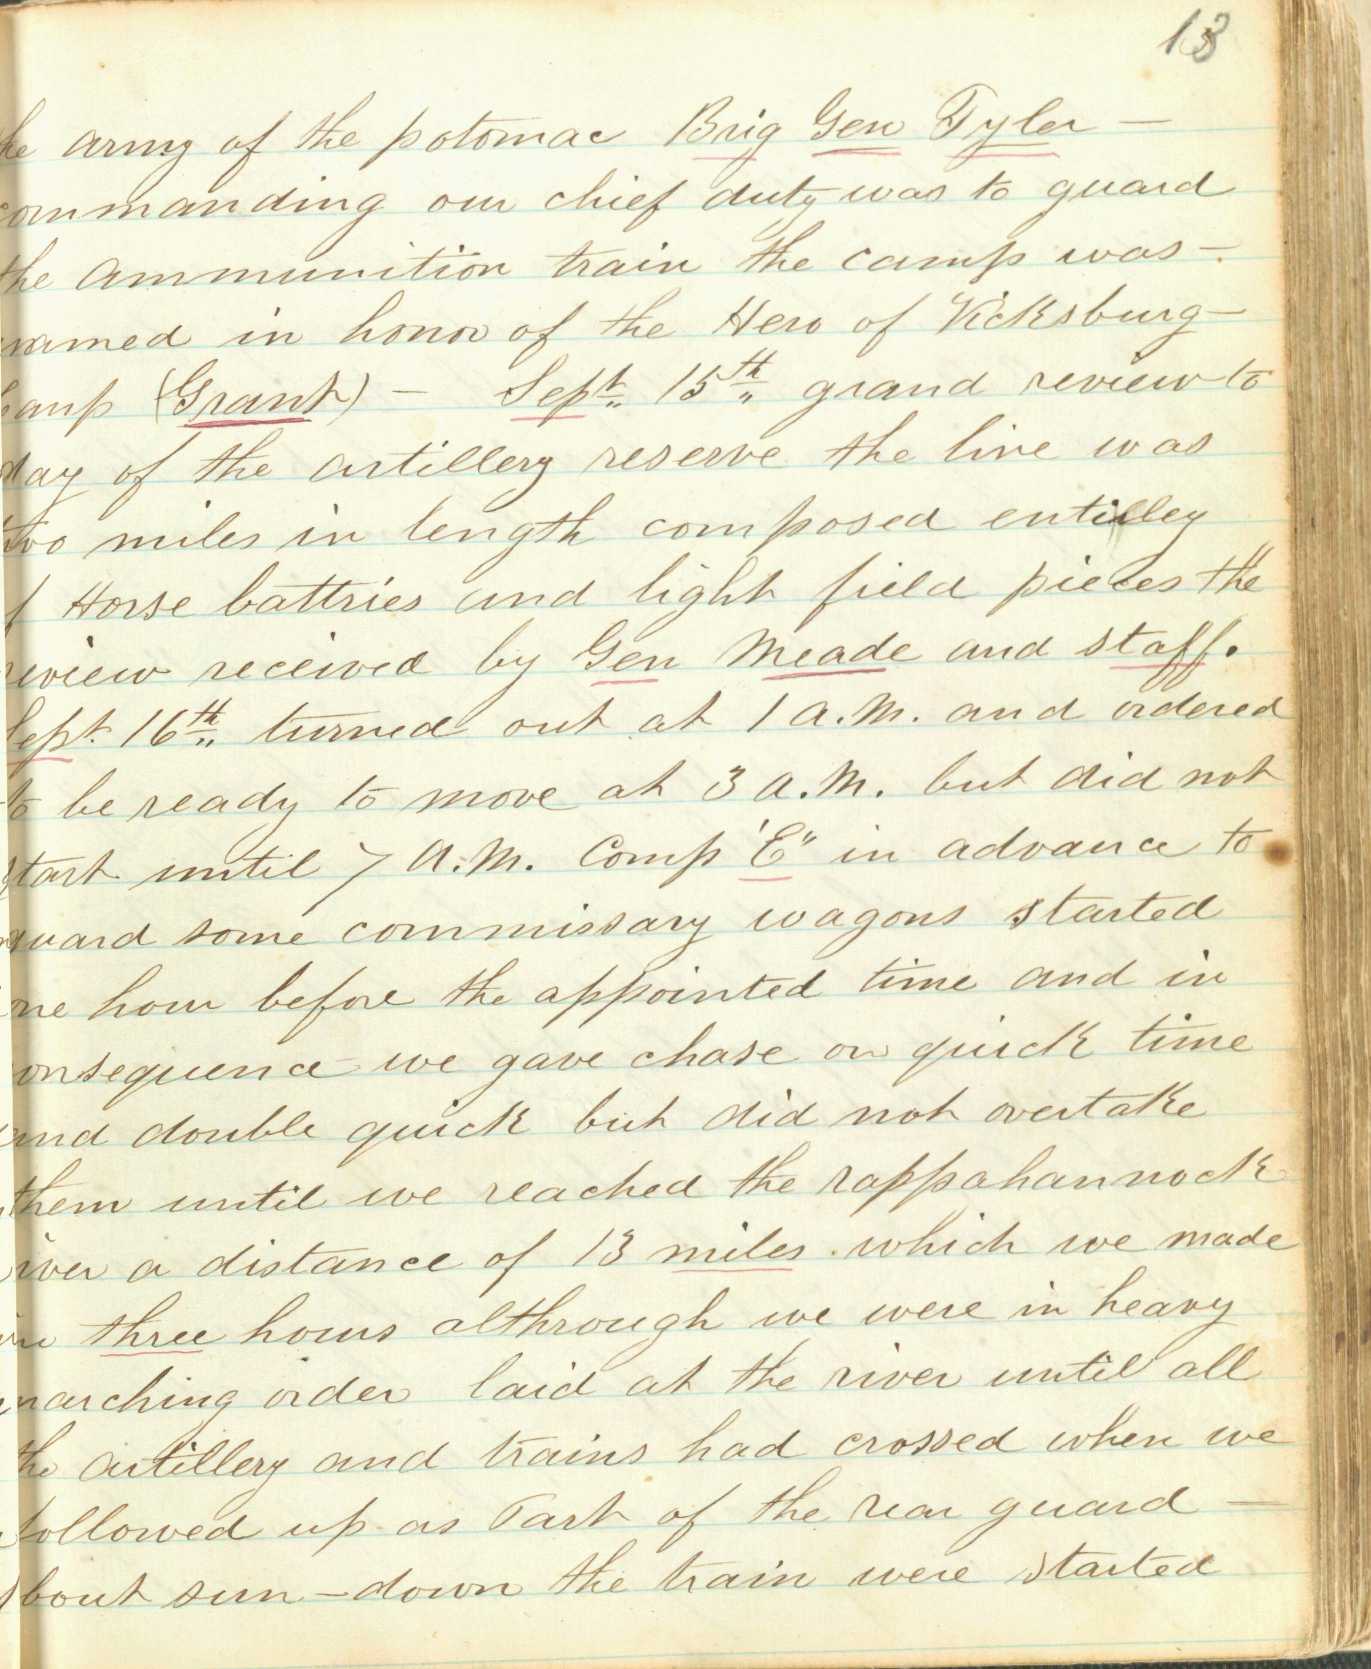 13
the army of the potomac Brig Gen Tyler —
commanding our chief duty was to guard
the ammunition train the camp was —
named in honor of the Hero of Vicksburg —
Camp (Grant) — Sept. 15th grand review to
day of the artillery reserve the line was
two miles in length composed entilley
of Horse battries and light field pieces the
review received by Gen Meade and staff.
Sept. 16th turned out at 1 A.M. and ordered
to be ready to move at 3 A.M. but did not
start until 7 A.M. Comp "E" in advance to
guard some commissary wagons started
one hour before the appointed time and in
consequence we gave chase on quick time
and double quick but did not overtake
them until we reached the rappahannock
river a distance of 13 miles. which we made
in three hours althrough we were in heavy
marching order laid at the river until all
the artillery and trains had crossed when we
followed up as Part of the rear guard —
about sun-down the train were started